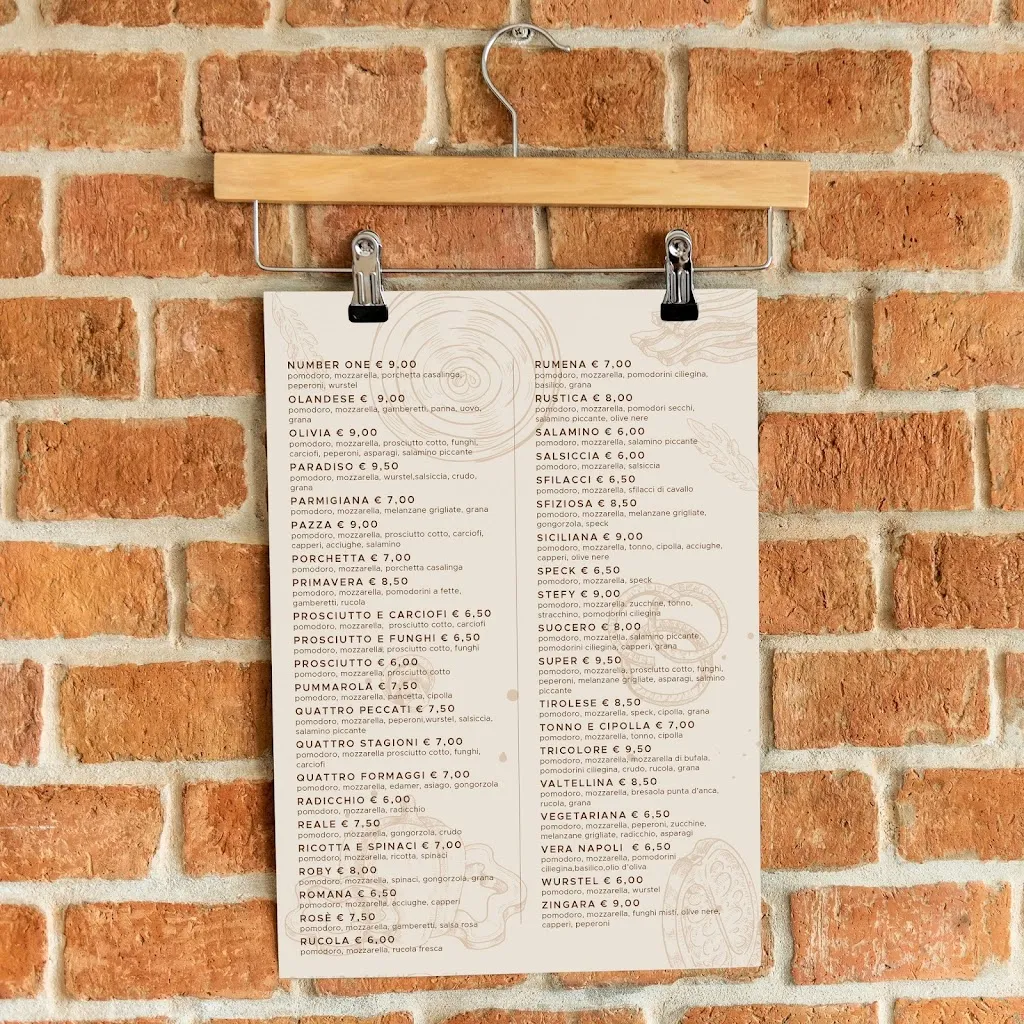 NUMBER ONE € 9,00
pomodoro, mozzarella, porchetta casalinga,
peperoni, wurstel
OLANDESE € 9,00
pomodoro, mozzarella, gamberetti, panna, uovo,
grana
OLIVIA € 9,00
pomodoro, mozzarella, prosciutto cotto, funghi,
carciofi, peperoni, asparagi, salamino piccante
PARADISO € 9,50
pomodoro, mozzarella, wurstel,salsiccia, crudo,
grana
PARMIGIANA € 7,00
pomodoro, mozzarella, melanzane grigliate, grana
PAZZA € 9,00
pomodoro, mozzarella, prosciutto cotto, carciofi,
capperi, acciughe, salamino
PORCHETTA € 7,00
pomodoro, mozzarella, porchetta casalinga
PRIMAVERA € 8,50
pomodoro, mozzarella, pomodorini a fette,
gamberetti, rucola
PROSCIUTTO E CARCIOFI € 6,50
pomodoro, mozzarella, prosciutto cotto, carciofi
PROSCIUTTO E FUNGHI € 6,50
pomodoro, mozzarella, prosciutto cotto, funghi
PROSCIUTTO € 6,00
pomodoro, mozzarella, prosciutto cotto
PUMMAROLA € 7,50
pomodoro, mozzarella, pancetta, cipolla
QUATTRO PECCATI € 7,50
pomodoro, mozzarella, peperoni,wurstel, salsiccia,
salamino piccante
QUATTRO STAGIONI € 7,00
pomodoro, mozzarella prosciutto cotto, funghi,
carciofi
QUATTRO FORMAGGI € 7,00
pomodoro, mozzarella, edamer, asiago, gongorzola
RADICCHIO € 6,00
pomodoro, mozzarella, radicchio
REALE € 7,50
pomodoro, mozzarella, gongorzola, crudo
RICOTTA E SPINACI € 7,00
pomodoro, mozzarella, ricotta, spinaci
ROBY € 8,00
pomodoro, mozzarella, spinaci, gongorzola, grana
ROMANA € 6,50
pomodoro, mozzarella, acciughe, capperi
ROSÈ € 7,50
pomodoro, mozzarella, gamberetti, salsa rosa
RUCOLA € 6,00
pomodoro, mozzarella, rucola fresca
RUMENA € 7,00
pomodoro, mozzarella, pomodorini ciliegina,
basilico, grana
RUSTICA € 8,00
pomodoro, mozzarella, pomodori secchi,
salamino piccante, olive nere
SALAMINO € 6,00
pomodoro, mozzarella, salamino piccante
SALSICCIA € 6,00
pomodoro, mozzarella, salsiccia
SFILACCI € 6,50
pomodoro, mozzarella, sfilacci di cavallo
SFIZIOSA € 8,50
pomodoro, mozzarella, melanzane grigliate,
gongorzola, speck
SICILIANA € 9,00
pomodoro, mozzarella, tonno, cipolla, acciughe,
capperi, olive nere
SPECK € 6,50
pomodoro, mozzarella, speck
STEFY € 9,00
pomodoro, mozzarella, zucchine, tonno,
stracchino, pomodorini ciliegina
SUOCERO € 8,00
pomodoro, mozzarella, salamino piccante,
pomodorini ciliegina, capperi, grana
SUPER € 9,50
pomodoro, mozzarella, prosciutto cotto, funghi,
peperoni, melanzane grigliate, asparagi, salmino
piccante
TIROLESE € 8,50
pomodoro, mozzarella, speck, cipolla, grana
TONNO E CIPOLLA € 7,00
pomodoro, mozzarella, tonno, cipolla
TRICOLORE € 9,50
pomodoro, mozzarella, mozzarella di bufala,
pomodorini ciliegina, crudo, rucola, grana
VALTELLINA € 8,50
pomodoro, mozzarella, bresaola punta d'anca,
rucola, grana
VEGETARIANA € 6,50
pomodoro, mozzarella, peperoni, zucchine,
melanzane grigliate, radicchio, asparagi
VERA NAPOLI € 6,50
pomodoro, mozzarella, pomodorini
ciliegina,basilico,olio d'oliva
WURSTEL € 6,00
pomodoro, mozzarella, wurstel
ZINGARA € 9,00
pomodoro, mozzarella, funghi misti, olive nere,
capperi, peperoni